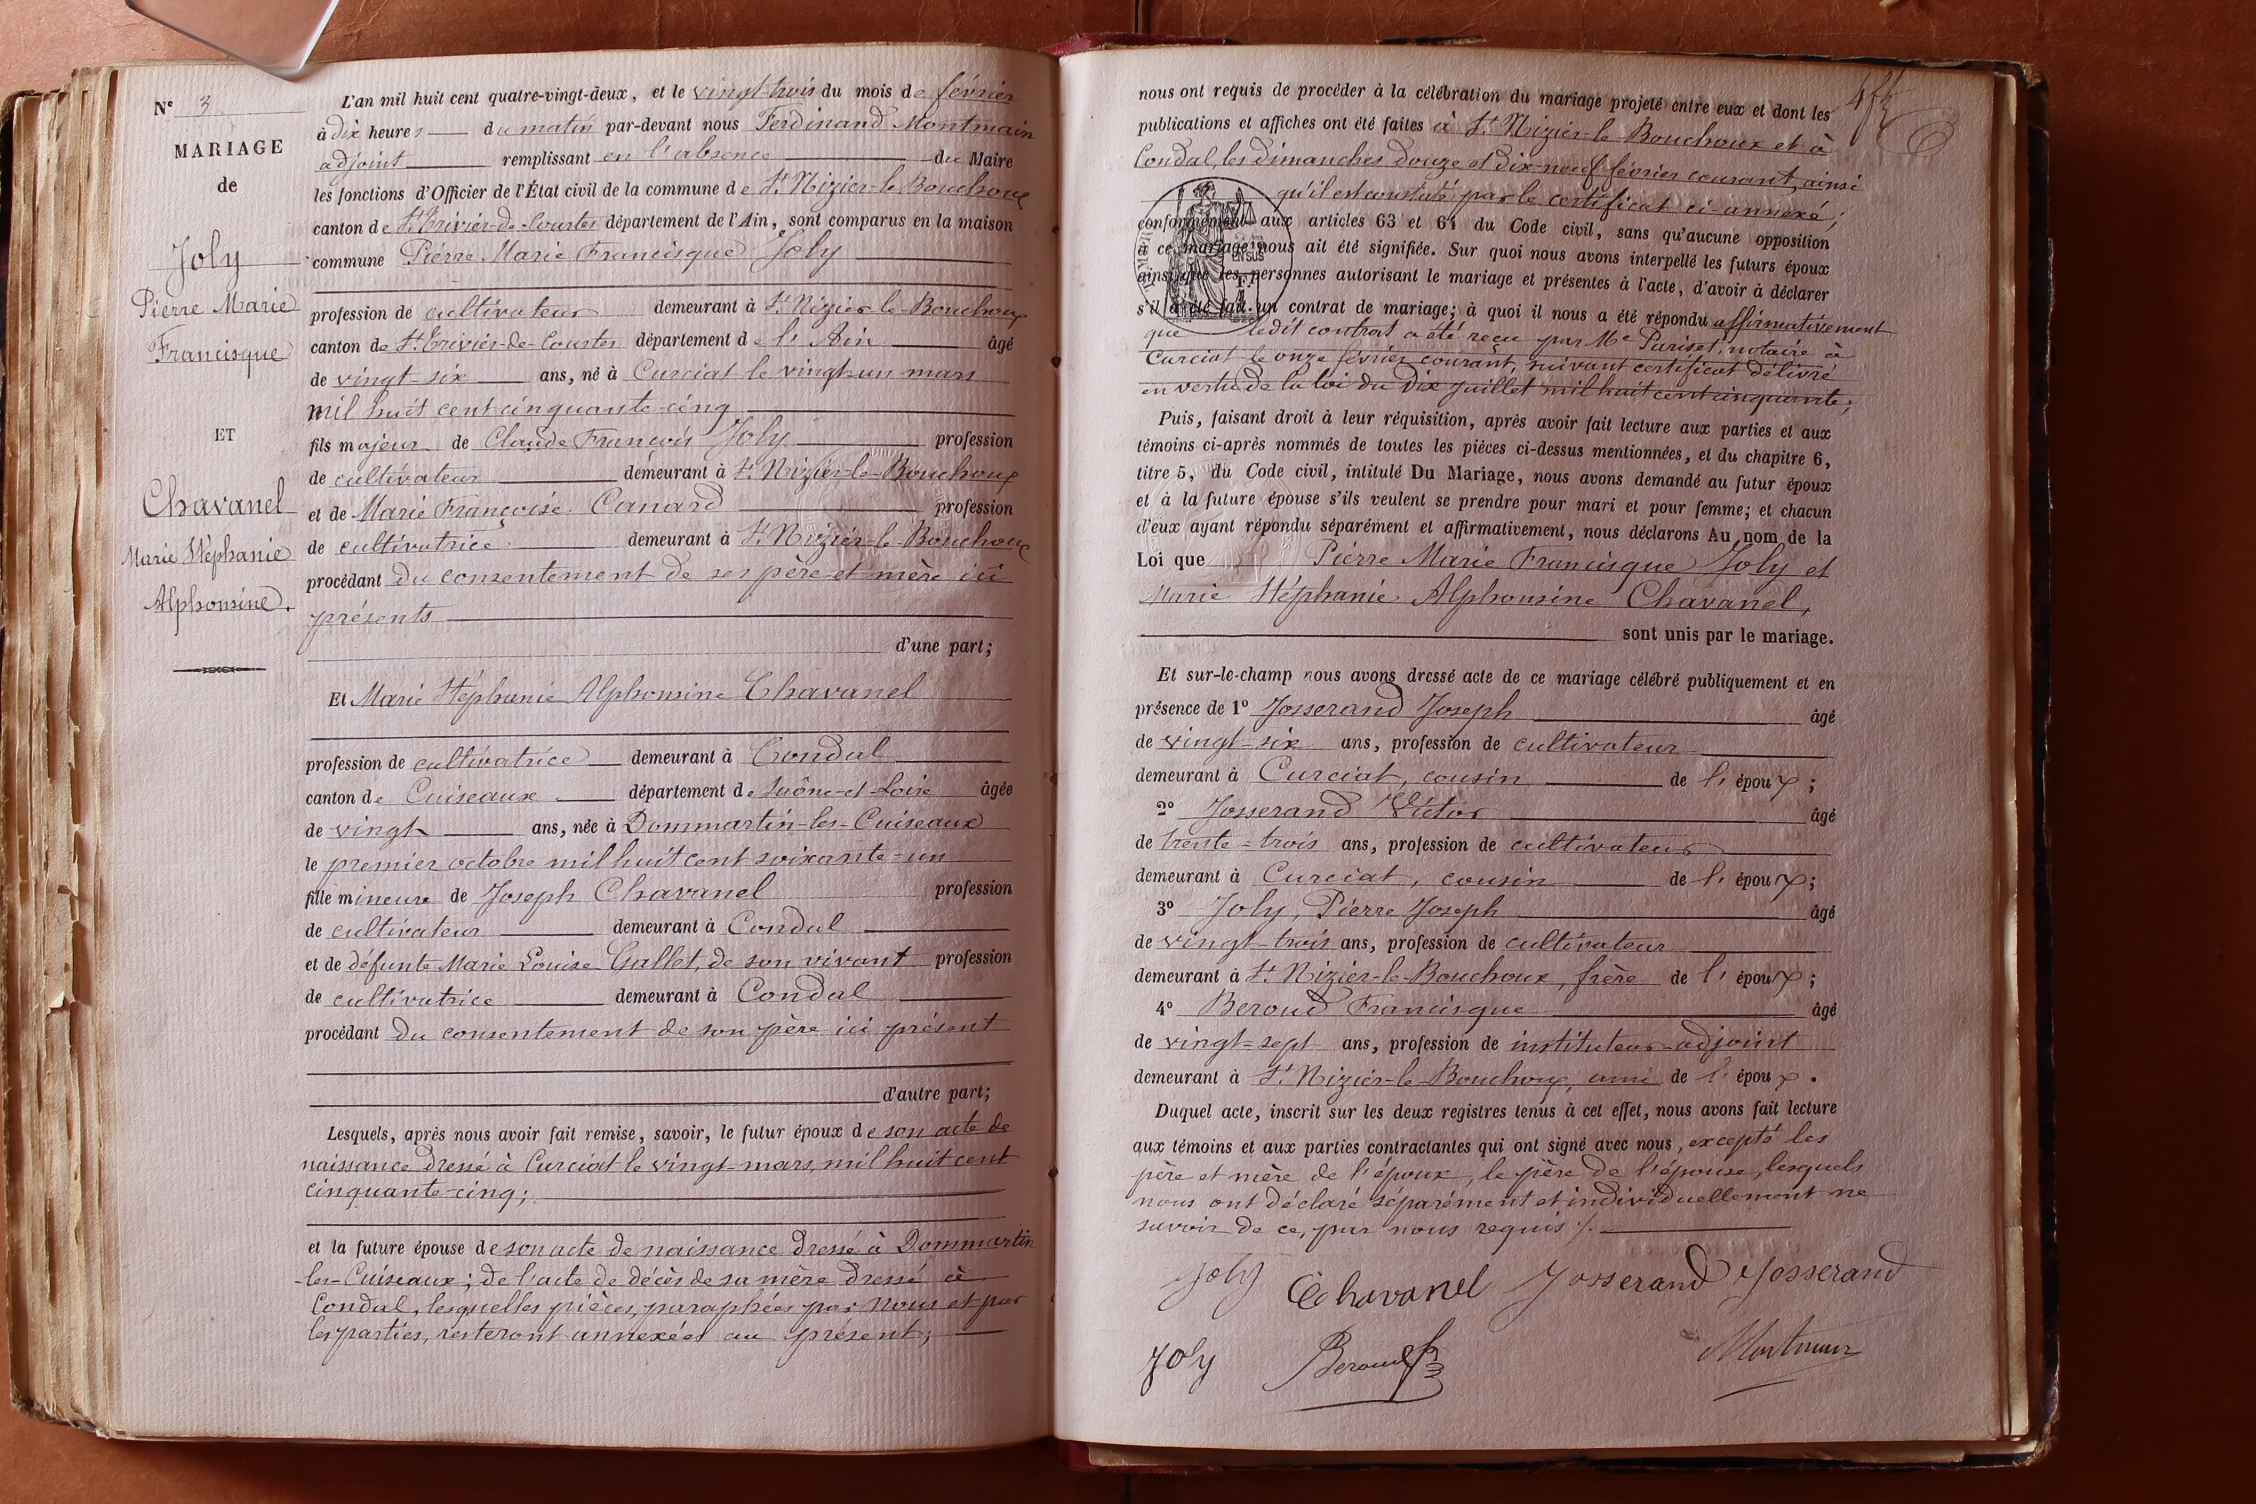 N° 3
MARIAGE
de
Joly
Pierre Marie
Francisque
ET
Chavanel
Marie Stéphanie
Alphonsine.
L'an mil huit cent quatre-vingt-deux, et le vingt-trois du mois de février
à dix heures du matin par-devant nous Ferdinand Montmain
adjoint remplissant en l'absence du Maire
les fonctions d'Officier de l'État civil de la commune de St Nizier-le-Bouchoux
canton de St Trivier-de-Courtes département de l'Ain, sont comparus en la maison
commune Pierre Marie Francisque Joly
profession de cultivateur demeurant à St Nizier-le-Bouchoux
canton de St Trivier-de-Courtes département de l'Ain âgé
de vingt-six ans, né à Curciat le vingt-un mars
mil huit cent cinquante-cinq
fils majeur de Claude François Joly profession
de cultivateur demeurant à St Nizier-le-Bouchoux
et de Marie Françoise Canard profession
de cultivatrice demeurant à St Nizier-le-Bouchoux
procédant du consentement de ses père et mère ici
présents
d'une part;
Et Marie Stéphanie Alphonsine Chavanel
profession de cultivatrice demeurant à Condal
canton de Cuiseaux département de Saône-et-Loire âgée
de vingt ans, née à Dommartin-les-Cuiseaux
le premier octobre mil huit cent soixante-un
fille mineure de Joseph Chavanel profession
de cultivateur demeurant à Condal
et de défunte Marie Louise Gallet, de son vivant profession
de cultivatrice demeurant à Condal
procédant du consentement de son père ici présent
d'autre part;
Lesquels, après nous avoir fait remise, savoir, le futur époux de son acte de
naissance dressé à Curciat le vingt-mars, mil huit cent
cinquante-cinq;
et la future épouse de son acte de naissance dressé à Dommartin
-les-Cuiseaux; de l'acte de décès de sa mère dressé à
Condal, lesquelles pièces, paraphées par nous et par
les parties, resteront annexées au présent;
nous ont requis de procéder à la célébration du mariage projeté entre eux et dont les
publications et affiches ont été faites à St Nizier-le-Bouchoux et à
Condal, les dimanches douze et dix-neuf février courant, ainsi
qu'il est constaté par le certificat ci-annexé;
conformément aux articles 63 et 64 du Code civil, sans qu'aucune opposition
à ce mariage nous ait été signifiée. Sur quoi nous avons interpellé les futurs époux
ainsi que les personnes autorisant le mariage et présentes à l'acte, d'avoir à déclarer
s'il a été fait un contrat de mariage; à quoi il nous a été répondu affirmativement
que ledit contrat a été reçu par Me Puriset, notaire à
Curciat le onze février courant, suivant certificat délivré
en vertu de la loi du dix juillet mil huit cent cinquante;
Puis, faisant droit à leur réquisition, après avoir fait lecture aux parties et aux
témoins ci-après nommés de toutes les pièces ci-dessus mentionnées, et du chapitre 6,
titre 5, du Code civil, intitulé Du Mariage, nous avons demandé au futur époux
et à la future épouse s'ils veulent se prendre pour mari et pour femme; et chacun
d'eux ayant répondu séparément et affirmativement, nous déclarons Au nom de la
Loi que Pierre Marie Francisque Joly et
Marie Stéphanie Alphonsine Chavanel,
sont unis par le mariage.
Et sur-le-champ nous avons dressé acte de ce mariage célébré publiquement et en
présence de 1° Josserand Joseph âgé
de vingt-six ans, profession de cultivateur
demeurant à Curciat, cousin de l'époux;
2° Josserand Victor âgé
de trente-trois ans, profession de cultivateur
demeurant à Curciat, cousin de l'époux;
3° Joly, Pierre Joseph âgé
de vingt-trois ans, profession de cultivateur
demeurant à St Nizier-le-Bouchoux, frère de l'époux;
4° Beroud Francisque âgé
de vingt-sept ans, profession de instituteur-adjoint
demeurant à St Nizier-le-Bouchoux, ami de l'époux.
Duquel acte, inscrit sur les deux registres tenus à cet effet, nous avons fait lecture
aux témoins et aux parties contractantes qui ont signé avec nous, excepté les
père et mère de l'époux, le père de l'épouse, lesquels
nous ont déclaré séparément et individuellement ne
savoir de ce, par nous requis ./.
Joly Chavanel Josserand Josserand
Joly Beroud fr Montmain